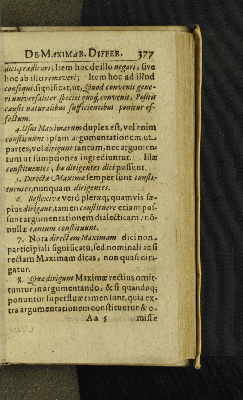 DE MAXIMAR. DIFFER. 377
dici, prædicari; Item hoc de illo negari; sive
hoc ab illo removeri; Item hoc ad illud
consequi, significat, ut, Quod convenit gene-
ri universaliter speciei quoq; convenit, Positis
causis naturalibus sufficientibus ponitur ef-
fectum.
4. Usus Maximarum duplex est, vel enim
constituunt ipsam argumentationem ut
partes; vel dirigunt tantum, nec argumen-
tum ut sumptiones ingrediuntur. Illæ
constituentes, hæ dirigentes dici possunt.
5. Directæ Maximæ semper sunt consti-
tuentes, nunquam dirigentes.
6. Reflexivæ verò pleræq; quamvis sæ-
pius dirigant, tamen constituere etiam pos-
sunt argumentationem dialecticam; nō-
nullæ tantum constituunt.
7. Nota directam Maximam dici non
participiali significatu, sed nominali: ac si
rectam Maximam dicas, non quasi diri-
gatur.
8. Quæ dirigunt Maximæ rectius omit-
tuntur in argumentando, & si quandoq;
ponuntur superfluæ tamen sunt, quia ex-
tra argumentationem constituunt & o-
Aa 5 missæ